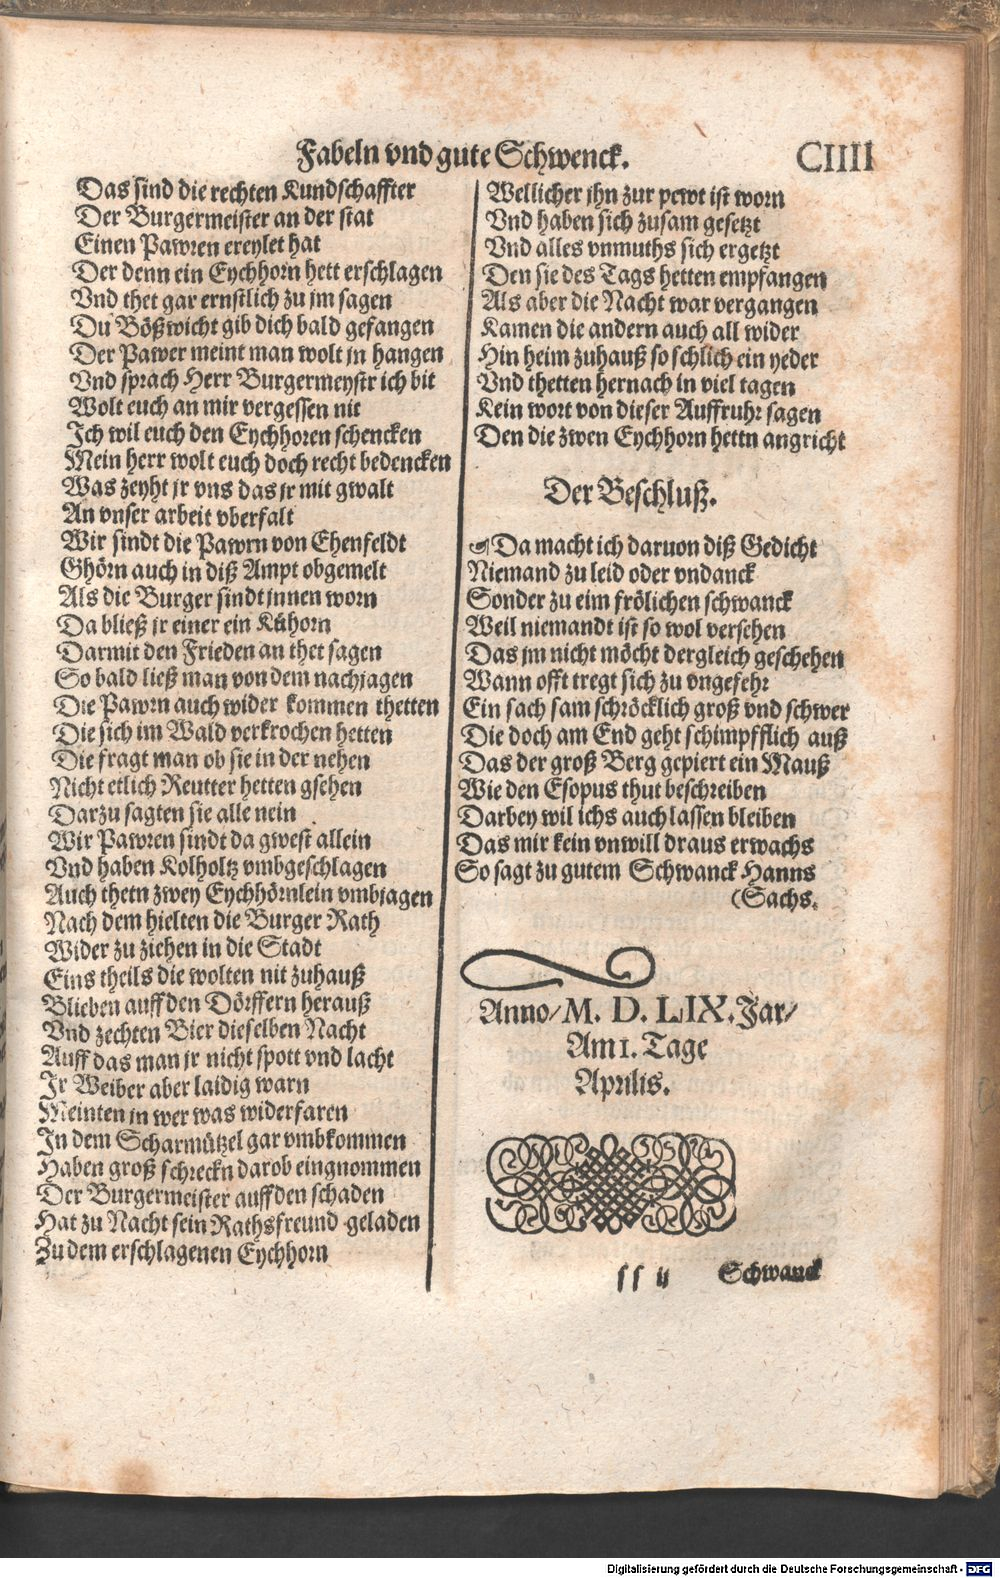 Fabeln vnd gute Schwenck.
CIIII
Das sind die rechten Kundschaffter
Der Burgermeister an der stat
Einen Pawren ereylet hat
Der denn ein Eychhorn hett erschlagen
Vnd thet gar ernstlich zu jm sagen
Du Bößwicht gib dich bald gefangen
Der Pawer meint man wolt jn hangen
Vnd sprach Herr Burgermeystr ich bit
Wolt euch an mir vergessen nit
Ich wil euch den Eychhoren schencken
Mein herr wolt euch doch recht bedencken
Was zeyht jr vns das jr mit gwalt
An vnser arbeit vberfalt
Wir sindt die Pawrn von Ehenfeldt
Ghörn auch in diß Ampt obgemelt
Als die Burger sindt jnnen worn
Da bließ jr einer ein Kühorn
Darmit den Frieden an thet sagen
So bald ließ man von dem nachjagen
Die Pawrn auch wider kommen thetten
Die sich im Wald verkrochen hetten
Die fragt man ob sie in der nehen
Nicht etlich Reutter hetten gsehen
Darzu sagten sie alle nein
Wir Pawren sindt da gwest allein
Vnd haben Kolholtz vmbgeschlagen
Auch thetn zwey Eychhörnlein vmbjagen
Nach dem hielten die Burger Rath
Wider zu ziehen in die Stadt
Eins theils die wolten nit zuhauß
Blieben auff den Dörffern herauß
Vnd zechten Bier dieselben Nacht
Auff das man jr nicht spott vnd lacht
Jr Weiber aber laidig warn
Meinten in wer was widerfaren
In dem Scharmützel gar vmbkommen
Haben groß schreckn darob eingnommen
Der Burgermeister auff den schaden
Hat zu Nacht sein Rathsfreund geladen
Zu dem erschlagenen Eychhorn
Wellicher jhn zur pewt ist worn
Vnd haben sich zusam gesetzt
Vnd alles vnmuths sich ergetzt
Den sie des Tags hetten empfangen
Als aber die Nacht war vergangen
Kamen die andern auch all wider
Hin heim zuhauß so schlich ein yeder
Vnd thetten hernach in viel tagen
Kein wort von dieser Auffruhr sagen
Den die zwen Eychhorn hettn angricht
Der Beschluß.
Da macht ich daruon diß Gedicht
Niemand zu leid oder vndanck
Sonder zu eim frölichen schwanck
Weil niemandt ist so wol versehen
Das jm nicht möcht dergleich geschehen
Wann offt tregt sich zu vngefehr
Ein sach sam schröcklich groß vnd schwer
Die doch am End geht schimpfflich auß
Das der groß Berg gepiert ein Mauß
Wie den Esopus thut beschreiben
Darbey wil ichs auch lassen bleiben
Das mir kein vnwill draus erwachs
So sagt zu gutem Schwanck Hanns
(Sachs.
Anno/M. D. LIX. Jar/
Am 1. Tage
Aprilis.
ss ij Schwanck
Digitalisierung gefördert durch die Deutsche Forschungsgemeinschaft - DFG